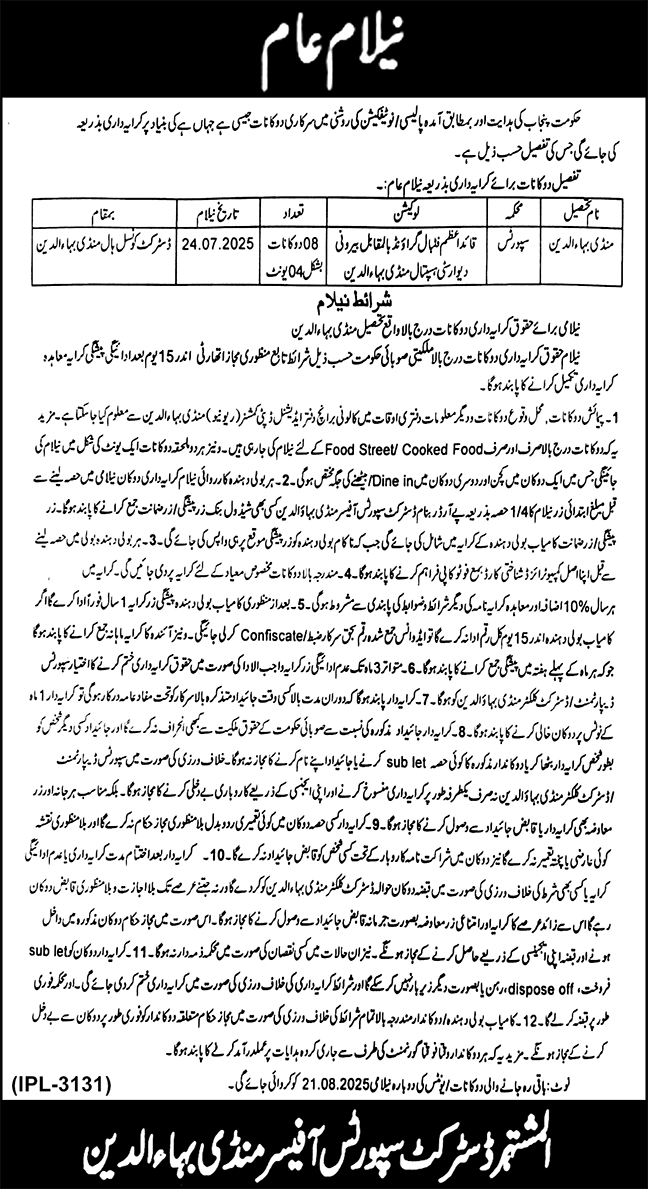 نیلام عام
حکومت پنجاب کی ہدایت اور بمطابق آمدہ پالیسی/نوٹیفکیشن کی روشنی میں سرکاری دوکانات جیسی ہے جہاں ہے کی بنیاد پر کرایہ داری بذریعہ
کی جائے گی جس کی تفصیل حسب ذیل ہے۔
تفصیل دوکانات برائے کرایہ داری بذریعہ نیلام عام:۔
نام تحصیل محکمہ لوکیشن تعداد تاریخ نیلام بمقام
منڈی بہاءالدین سپورٹس قائداعظم فٹبال گراؤنڈ بالمقابل بیرونی 08دوکانات 24.07.2025 ڈسٹرکٹ کونسل ہال منڈی بہاءالدین
دیوار سٹی ہسپتال منڈی بہاءالدین بشکل 04یونٹ
شرائط نیلام
نیلامی برائے حقوق کرایہ داری دوکانات درج بالا واقع تحصیل منڈی بہاءالدین
نیلام حقوق کرایہ داری دوکانات درج بالا ملکیتی صوبائی حکومت حسب ذیل شرائط تابع منظوری مجاز اتھارٹی اندر 15 یوم بعد ادائیگی پیشگی کرایہ معاہدہ
کرایہ داری تکمیل کرانے کا پابند ہوگا۔
1۔ پیمائش دوکانات، محل وقوع دوکانات و دیگر معلومات دفتری اوقات میں کالونی برانچ دفتر ایڈیشنل ڈپٹی کمشنر (ریونیو) منڈی بہاءالدین سے معلوم کیا جاسکتا ہے۔ مزید
یہ کہ دوکانات درج بالا صرف اور صرف Food Street/ Cooked Food کے لئے نیلام کی جارہی ہیں۔ ونیز ہر دو ملحقہ دوکانات ایک یونٹ کی شکل میں نیلام کی
جائینگی جس میں ایک دوکان میں کچن اور دوسری دوکان میں Dine in/بیٹھنے کی جگہ مختص ہوگی۔ 2۔ ہر بولی دہندہ کارروائی نیلام کرایہ داری دوکان نیلامی میں حصہ لینے سے
قبل مبلغ ابتدائی زر نیلام کا 1/4 حصہ بذریعہ پے آرڈر بنام ڈسٹرکٹ سپورٹس آفیسر منڈی بہاؤالدین کسی بھی شیڈول بنک زر پیشگی/زر ضمانت جمع کرانے کا پابند ہوگا۔ زر
پیشگی/زر ضمانت کامیاب بولی دہندہ کے کرایہ میں شامل کی جائے گی جب کہ ناکام بولی دہندہ کو زر پیشگی موقع پر ہی واپس کی جائے گی۔ 3۔ ہر بولی دہندہ بولی میں حصہ لینے
سے قبل اپنا اصل کمپیوٹرائزڈ شناختی کارڈ بمع فوٹو کاپی فراہم کرنے کا پابند ہوگا۔ 4۔ مندرجہ بالا دوکانات مخصوص معیاد کے لئے کرایہ پر دی جائیں گی۔ کرایہ میں
ہر سال 10% اضافہ اور معاہدہ کرایہ نامہ کی دیگر شرائط و ضوابط کی پابندی سے مشروط ہوگی۔ 5۔ بعد از منظوری کامیاب بولی دہندہ پیشگی زر کرایہ 1 سال فوراً ادا کرے گا اگر
کامیاب بولی دہندہ اندر 15 یوم کل رقم ادا نہ کرے گا تو ایڈوانس جمع شدہ رقم بحق سرکار ضبط/Confiscate کرلی جائیگی۔ ونیز آئندہ کا کرایہ ماہانہ جمع کرانے کا پابند ہوگا
جو کہ ہر ماہ کے پہلے ہفتہ میں پیشگی جمع کرانے کا پابند ہوگا۔ 6۔ متواتر 3 ماہ تک عدم ادائیگی زر کرایہ واجب الادا کی صورت میں حقوق کرایہ داری ختم کرنے کا اختیار سپورٹس
ڈیپارٹمنٹ/ڈسٹرکٹ کلکٹر منڈی بہاؤالدین کو ہوگا۔ 7۔ کرایہ دار پابند ہوگا کہ دوران مدت بالا کسی وقت جائیداد متذکرہ بالا سرکار کو تحت مفاد عامہ درکار ہوگی تو کرایہ دار 1 ماہ
کے نوٹس پر دوکان خالی کرنے کا پابند ہوگا۔ 8۔ کرایہ دار جائیداد مذکورہ کی نسبت سے صوبائی حکومت کے حقوق ملکیت سے کبھی انحراف نہ کرے گا اور جائیداد کسی دیگر شخص کو
بطور شخص کرایہ دار بٹھا کر یا دوکاندار مذکورہ کا کوئی حصہ sub let کرنے یا جائیداد اپنے نام کرنے کا مجاز نہ ہوگا۔ خلاف ورزی کی صورت میں سپورٹس ڈیپارٹمنٹ
/ڈسٹرکٹ کلکٹر منڈی بہاؤالدین نہ صرف یکطرفہ طور پر کرایہ داری منسوخ کرنے اور اپنی ایجنسی کے ذریعے کاروباری بے دخلی کرنے کا مجاز ہوگا۔ بلکہ مناسب ہرجانہ اور زر
معاوضہ بھی کرایہ دار یا قابض جائیداد سے وصول کرنے کا مجاز ہوگا۔ 9۔ کرایہ دار کسی حصہ دوکان میں کوئی تعمیری ردوبدل بلا منظوری مجاز حکام نہ کرے گا اور بلا منظوری نقشہ
کوئی عارضی یا پختہ تعمیر نہ کرے گا نیز دوکان میں شراکت نامہ کاروبار کے تحت کسی شخص کو قابض جائیداد نہ کرے گا۔ 10۔ کرایہ دار بعد اختتام مدت کرایہ داری یا عدم ادائیگی
کرایہ یا کسی بھی شرط کی خلاف ورزی کی صورت میں قبضہ دوکان حوالہ ڈسٹرکٹ کلکٹر منڈی بہاءالدین کو کردے گا ورنہ جتنے عرصے تک بلا اجازت و بلا منظوری قابض دوکان
رہے گا اس سے زائد عرصے کا کرایہ اور امتناعی زر معاوضہ بصورت جرمانہ قابض جائیداد سے وصول کرنے کا مجاز ہوگا۔ اس صورت میں مجاز حکام دوکان مذکورہ میں داخل
ہونے اور قبضہ اپنی ایجنسی کے ذریعے حاصل کرنے کے مجاز ہونگے۔ نیز ان حالات میں کسی نقصان کی صورت میں محکمہ ذمہ دار نہ ہوگا۔ 11۔ کرایہ دار دوکان کو sub let
فروخت، dispose off، رہن یا بصورت دیگر زیر بار نہیں کرسکے گا اور شرائط کرایہ داری کی خلاف ورزی کی صورت میں کرایہ داری ختم کردی جائے گی۔ اور محکمہ فوری
طور پر قبضہ کرلے گا۔ 12۔ کامیاب بولی دہندہ/دوکاندار مندرجہ بالا تمام شرائط کی خلاف ورزی کی صورت میں مجاز حکام متعلقہ دوکاندار کو فوری طور پر دوکان سے بے دخل
کرنے کے مجاز ہونگے۔ مزید یہ کہ ہر دوکاندار وقتاً فوقتاً گورنمنٹ کی طرف سے جاری کردہ ہدایات پر عملدرآمد کرنے کا پابند ہوگا۔
نوٹ: باقی رہ جانے والی دوکانات/یونٹس کی دوبارہ نیلامی 21.08.2025 کو کروائی جائے گی۔
(IPL-3131)
المشتہر ڈسٹرکٹ سپورٹس آفیسر منڈی بہاءالدین